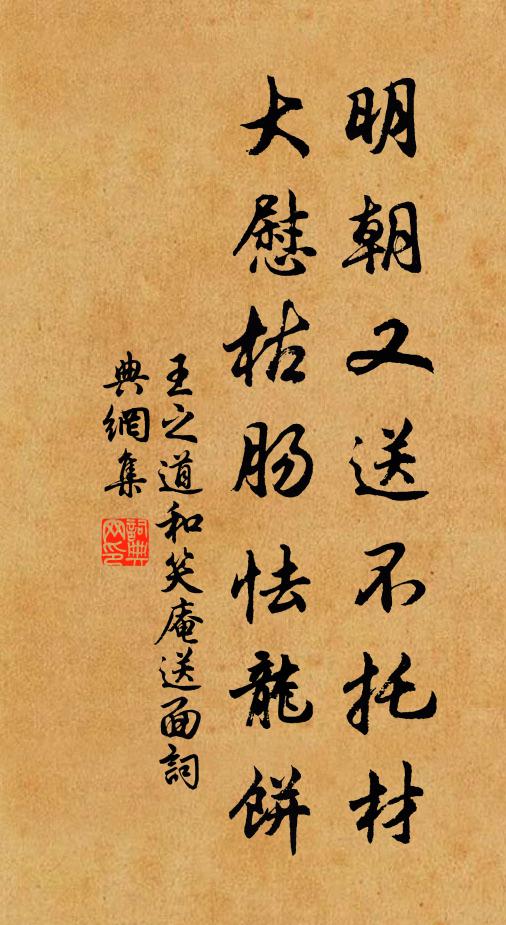 明朝又送不托材
大慰枯肠怯龍餅
王之道和笑庵送面詞
典網集
詞典网印